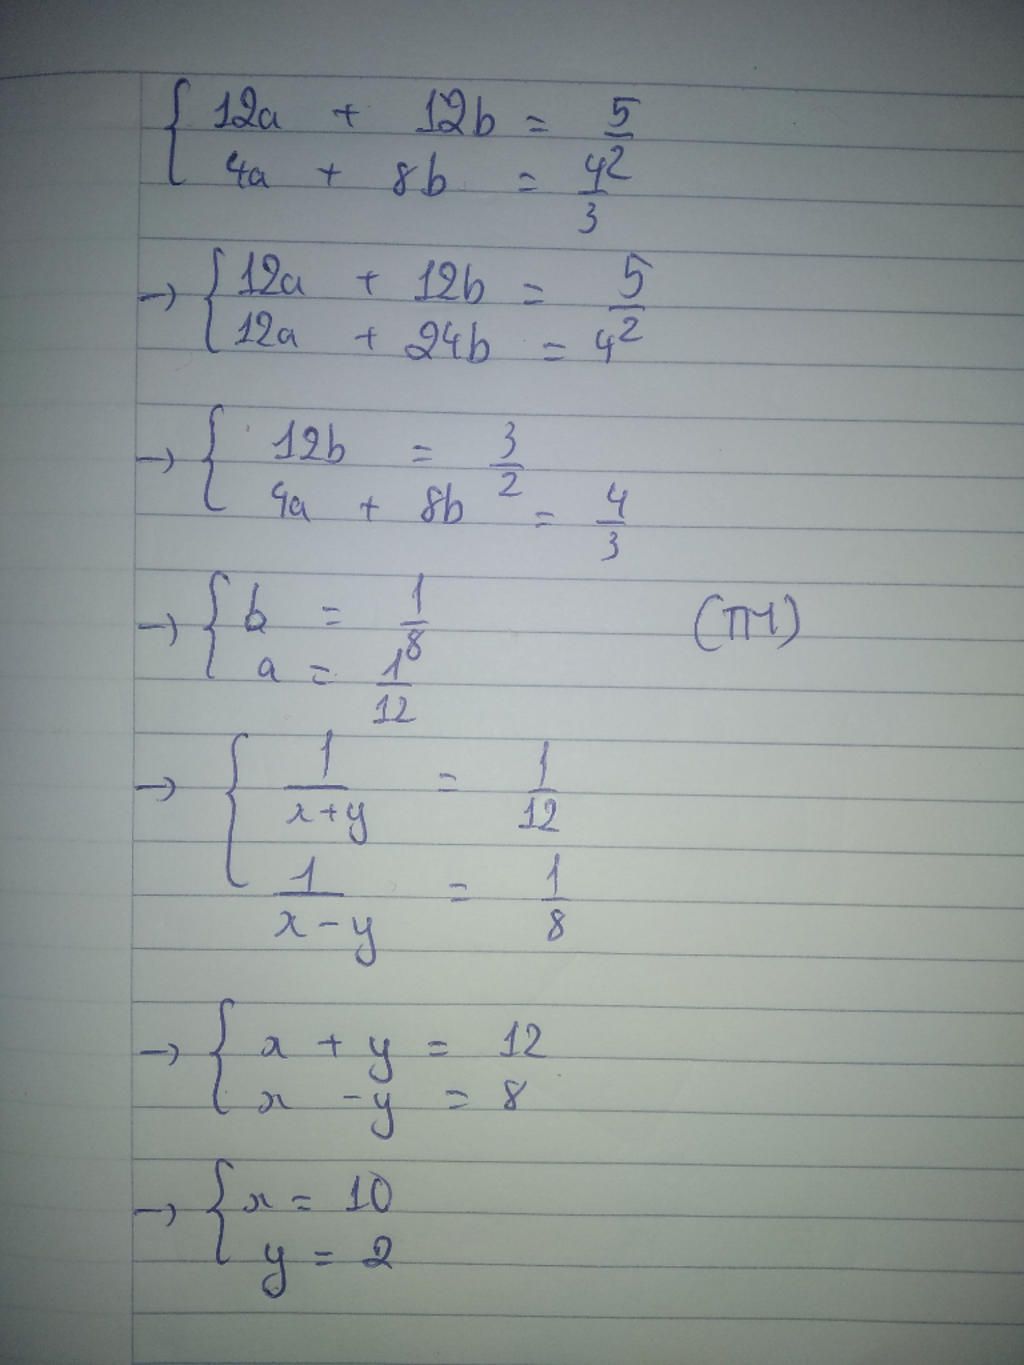 { 12a + 12b = 5/2
4a + 8b = 4/3
→ { 12a + 12b = 5/2
12a + 24b = 4
→ { 12b = 3/2
4a + 8b = 4/3
→ { b = 1/8 (TM)
a = 1/12
→ { 1/(x+y) = 1/12
1/(x-y) = 1/8
→ { x + y = 12
x - y = 8
→ { x = 10
y = 2